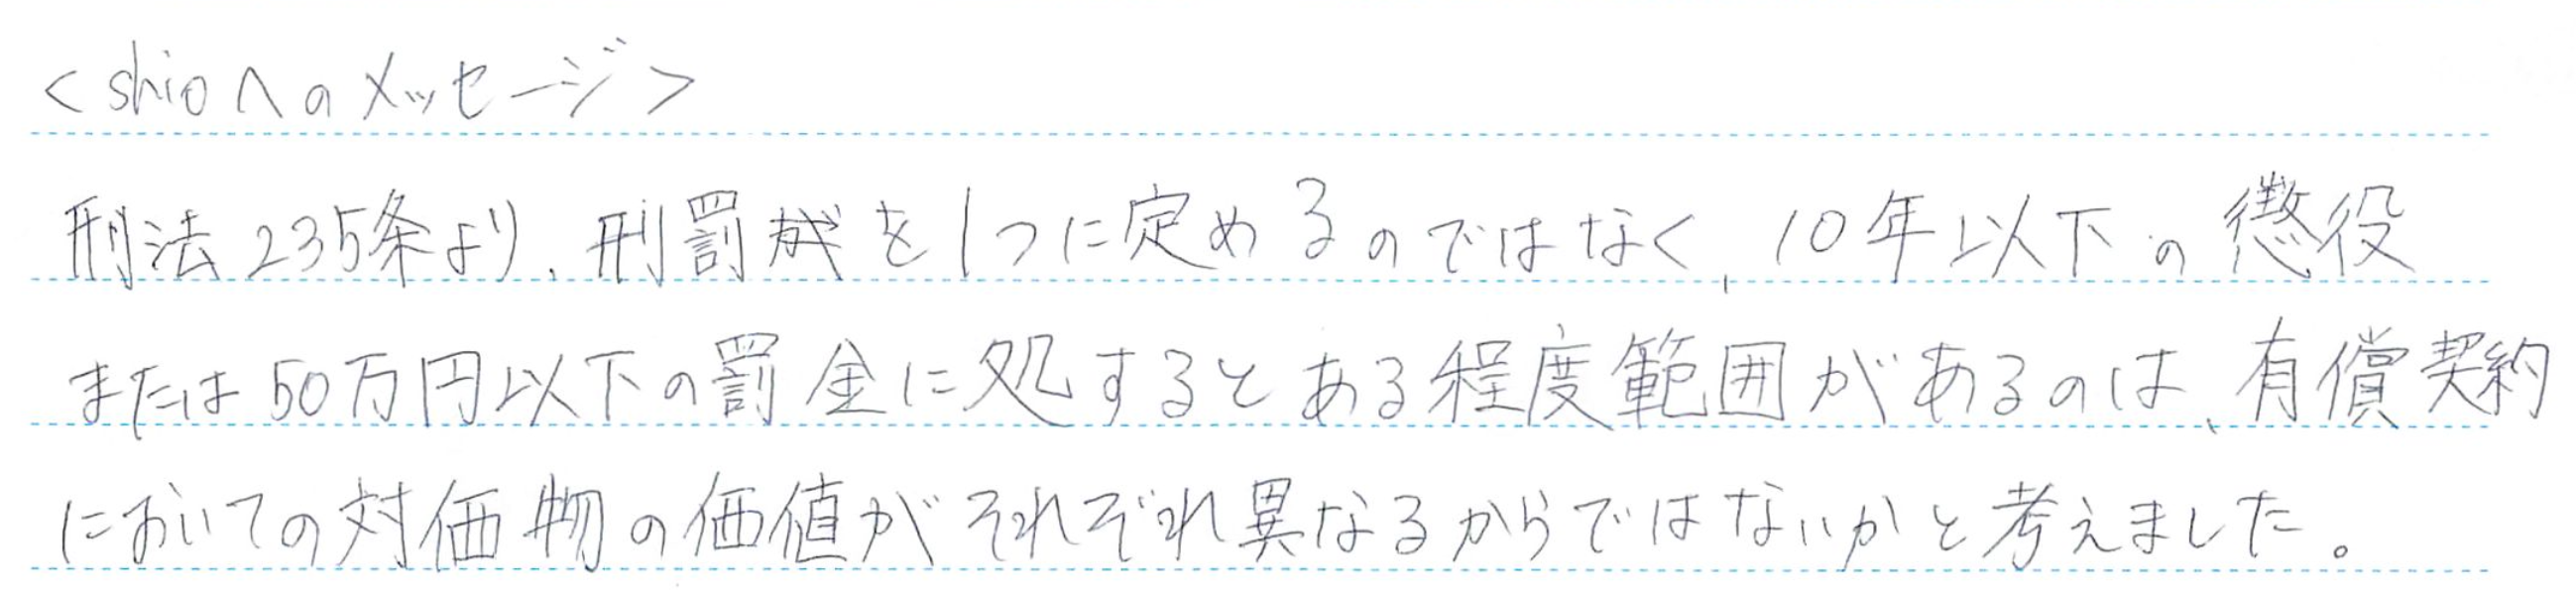 <shioへのメッセージ>
刑法235条より、刑罰を1つに定めるのではなく、10年以下の懲役
または50万円以下の罰金に処するとある程度範囲があるのは、有償契約
においての対価物の価値がそれぞれ異なるからではないかと考えました。